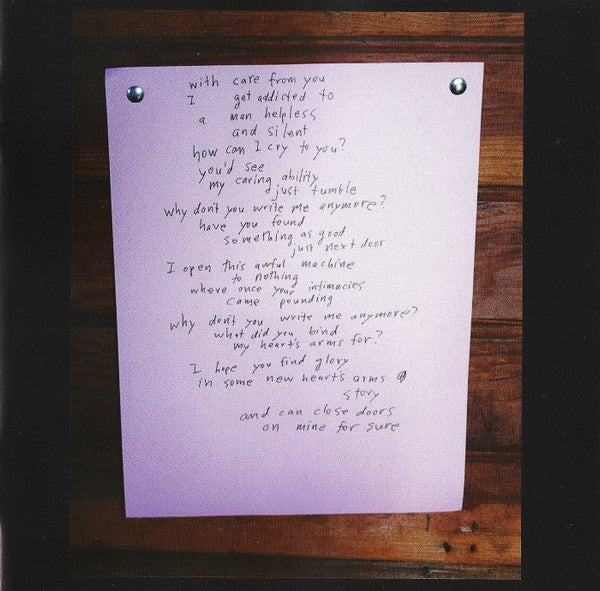 with care from you
I get addicted to
a man helpless
and silent
how can I cry to you?
you'd see
my caring ability
just tumble
why don't you write me anymore?
have you found
something as good
just next door
I open this awful machine
to nothing
where once your intimacies
came pounding
why don't you write me anymore?
what did you bind
my heart's arms for?
I hope you find glory
in some new heart's arms
story
and can close doors
on mine for sure